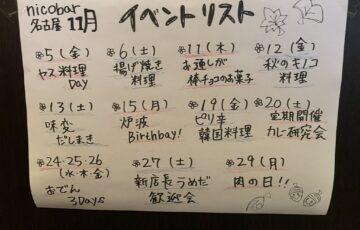 nicobar
名古屋 11月 イベントリスト
5(金) 6(土) 11(木) 12(金)
ヤス料理 揚げ焼き お通しが 秋のキノコ
Day 料理 棒チョコのお菓子 料理
13(土) 15(月) 19(金) 20(土)
味変 炉波 ピリ辛 定期開催
だしまき Birthbay! 韓国料理 カレー研究会
24・25・26 27(土) 29(月)
(水・木・金) 新店長うめだ 肉の日!!
おでん 歓迎会
3Days